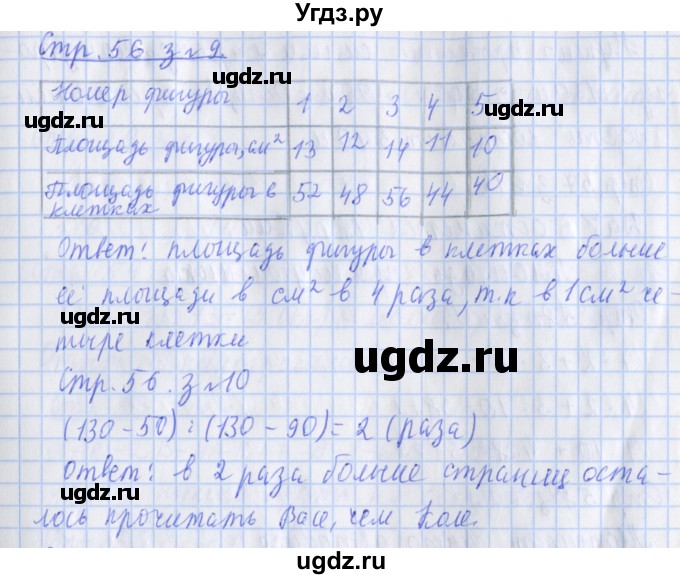 Угдз.ру
Стр. 56 з № 9.
Номер фигуры 1 2 3 4 5
Площадь фигуры, см² 13 12 14 11 10
Площадь фигуры в клетках 52 48 56 44 40
Ответ: площадь фигуры в клетках больше
её площади в см² в 4 раза, т.к в 1 см² че-
тыре клетки
Стр. 56. з № 10
(130 - 50) : (130 - 90) = 2 (раза)
Ответ: в 2 раза больше страниц оста-
лось прочитать Васе, чем Коле.
ugdz.ru
ugdz.ru
ugdz.ru
ugdz.ru
ugdz.ru
ugdz.ru
ugdz.ru
ugdz.ru
ugdz.ru